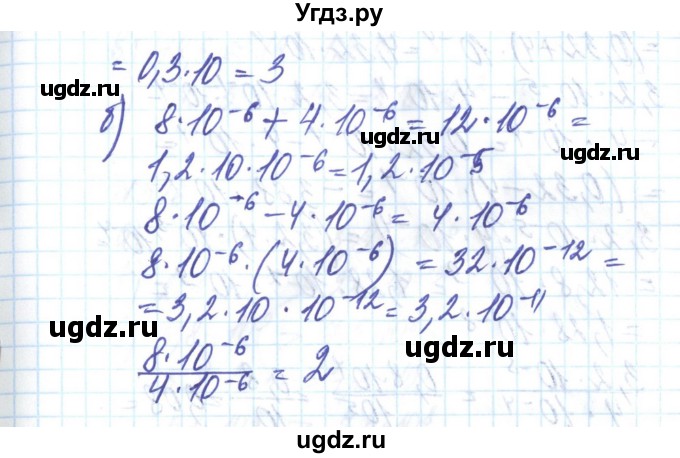 Угдз.ру
= 0,3·10 = 3
ugdz.ru
б) 8·10⁻⁶ + 4·10⁻⁶ = 12·10⁻⁶ =
ugdz.ru
ugdz.ru
1,2·10·10⁻⁶ = 1,2·10⁻⁵
8·10⁻⁶ − 4·10⁻⁶ = 4·10⁻⁶
8·10⁻⁶·(4·10⁻⁶) = 32·10⁻¹² =
ugdz.ru
= 3,2·10·10⁻¹² = 3,2·10⁻¹¹
ugdz.ru
8·10⁻⁶
4·10⁻⁶ = 2
ugdz.ru
ugdz.ru